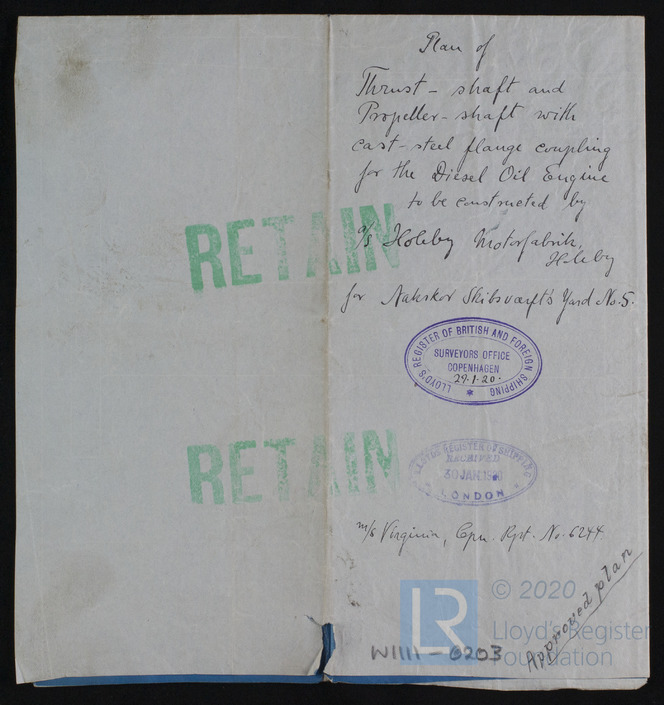 Plan of
Thrust - shaft and
Propeller - shaft with
cast-steel flange coupling
for the Diesel Oil Engine
to be constructed by
a/s Holeby Motorfabrik,
Holeby
for Nakskov Skibsværft's Yard No. 5.
RETAIN
LLOYD'S REGISTER OF BRITISH AND FOREIGN SHIPPING
SURVEYORS OFFICE
COPENHAGEN
29.1.20.
RETAIN
LLOYDS REGISTER OF SHIPPING
RECEIVED
30 JAN. 1920
LONDON
m/s Virginia, Cpn. Rpt. No. 6244
Approved plan
W1111 - 0203
LR
© 2020
Lloyd's Register
Foundation